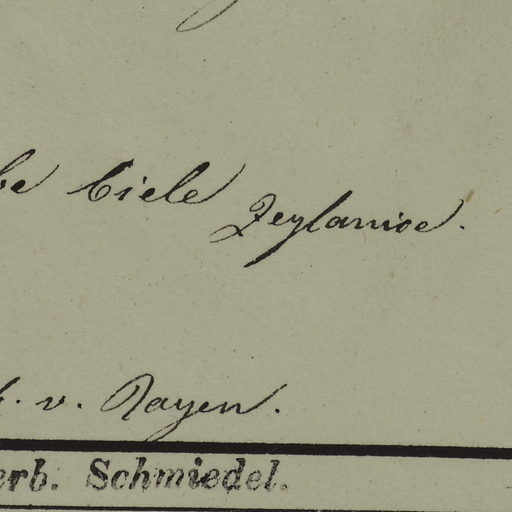 be Ciele Zeylanise.
h. v. Rayen.
erb. Schmiedel.